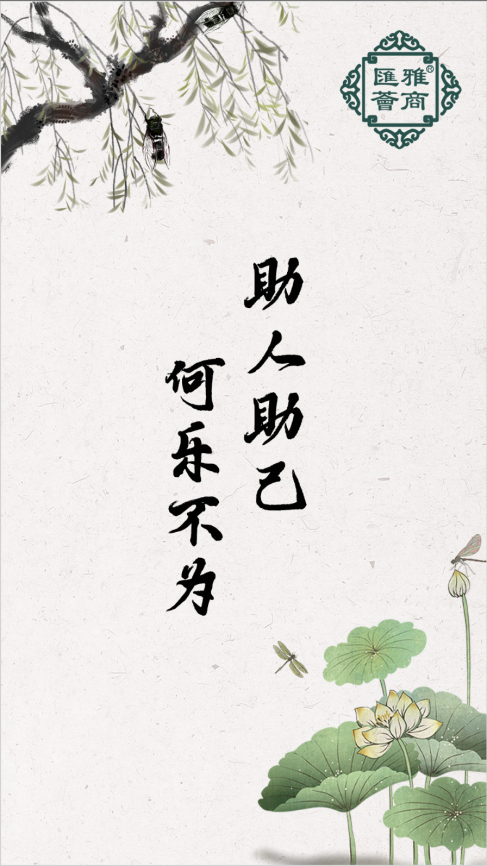 雅商®
匯薈
助人助己
何乐不为